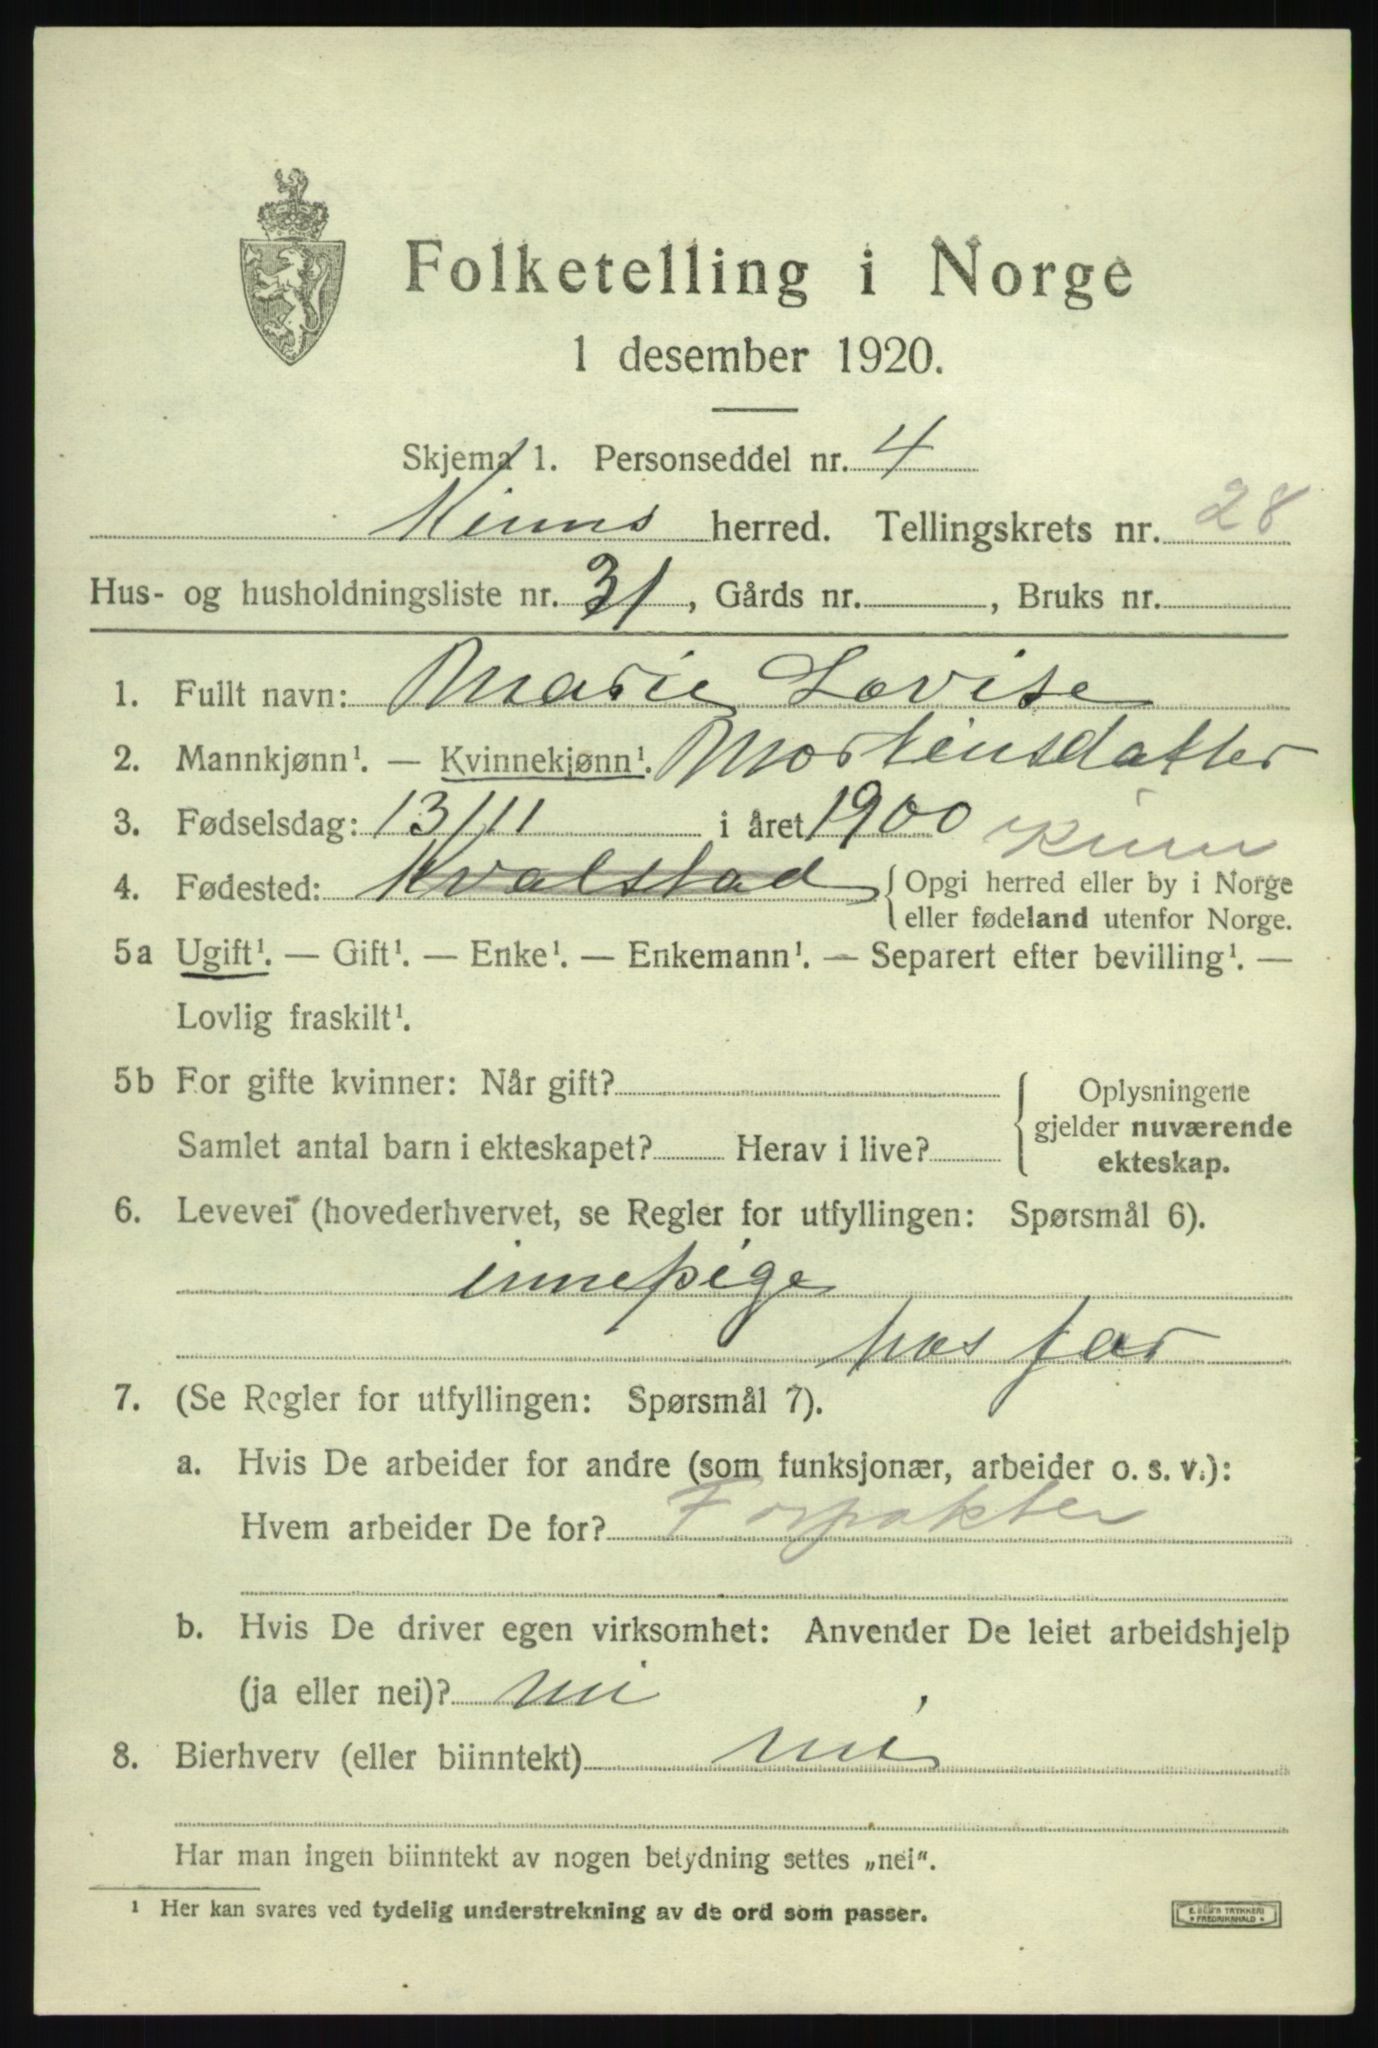 Folketelling i Norge
1 desember 1920.
Skjema 1. Personseddel nr. 4
Kinns herred. Tellingskrets nr. 28
Hus- og husholdningsliste nr. 31, Gårds nr. , Bruks nr.
1. Fullt navn: Marie Lovise
2. Mannkjønn¹. — Kvinnekjønn¹. Mortensdatter
3. Fødselsdag: 13/11 i året 1900 Kinn
4. Fødested: Kvalstad { Opgi herred eller by i Norge
eller fødeland utenfor Norge.
5a Ugift¹. — Gift¹. — Enke¹. — Enkemann¹. — Separert efter bevilling¹. —
Lovlig fraskilt¹.
5b For gifte kvinner: Når gift? { Oplysningene
gjelder nuværende
Samlet antal barn i ekteskapet? Herav i live? ekteskap.
6. Levevei (hovederhvervet, se Regler for utfyllingen: Spørsmål 6).
innepige
hos far
7. (Se Regler for utfyllingen: Spørsmål 7).
a. Hvis De arbeider for andre (som funksjonær, arbeider o. s. v.):
Hvem arbeider De for? Forpakter
b. Hvis De driver egen virksomhet: Anvender De leiet arbeidshjelp
(ja eller nei)? nei
8. Bierhverv (eller biinntekt) nei
Har man ingen biinntekt av nogen betydning settes „nei“.
¹ Her kan svares ved tydelig understrekning av de ord som passer.
TRYKKERI
* FREDRIKSHALD *